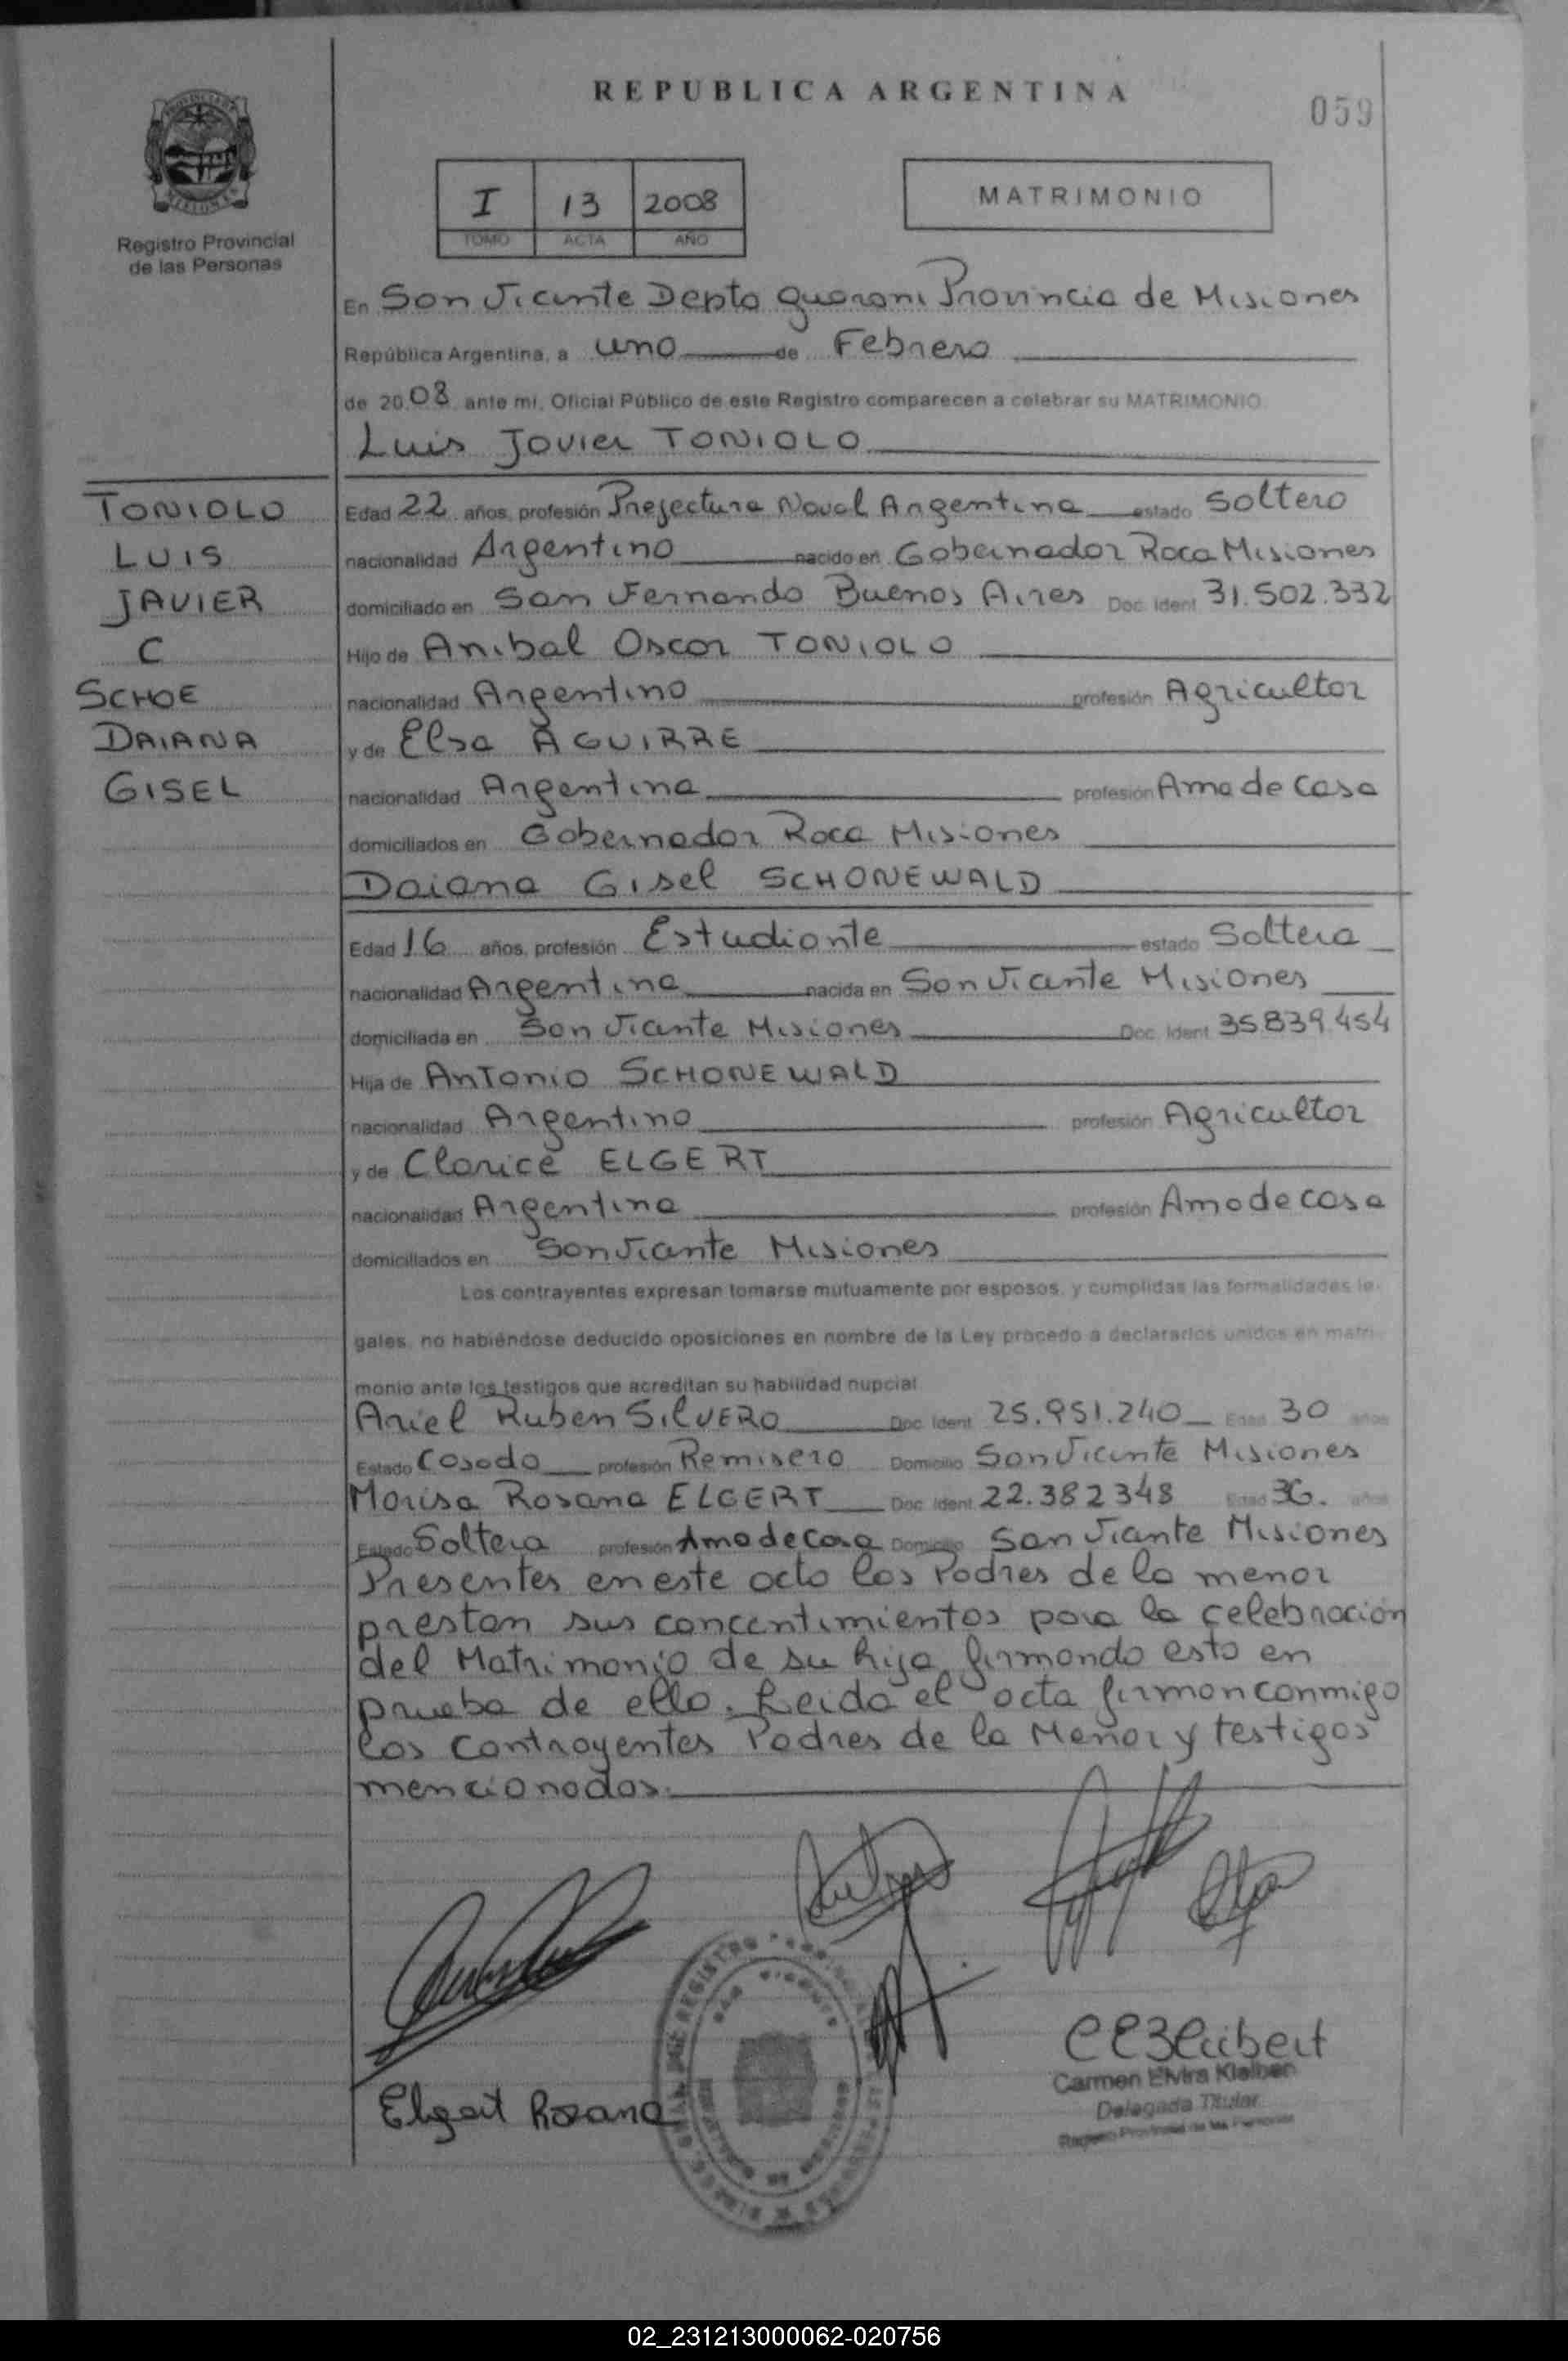 REPUBLICA ARGENTINA
059
I 13 2008
TOMO ACTA AÑO
MATRIMONIO
Registro Provincial
de las Personas
En San Vicente Depto Guarani Provincia de Misiones
República Argentina, a uno de Febrero
de 2008 ante mi, Oficial Público de este Registro comparecen a celebrar su MATRIMONIO
Luis Javier TONIOLO
TONIOLO
LUIS
JAVIER
C
SCHOE
DAIANA
GISEL
Edad 22 años, profesión Prefectura Naval Argentina estado Soltero
nacionalidad Argentino nacido en Gobernador Roca Misiones
domiciliado en San Fernando Buenos Aires Doc. Ident 31.502.332
Hijo de Anibal Oscar TONIOLO
nacionalidad Argentino profesión Agricultor
y de Elsa AGUIRRE
nacionalidad Argentina profesión Ama de Casa
domiciliados en Gobernador Roca Misiones
Daiana Gisel SCHONEWALD
Edad 16 años, profesión Estudiante estado Soltera
nacionalidad Argentina nacida en San Vicente Misiones
domiciliada en San Vicente Misiones Doc. Ident 35.839.454
Hija de Antonio SCHONEWALD
nacionalidad Argentino profesión Agricultor
y de Clarice ELGERT
nacionalidad Argentina profesión Ama de casa
domiciliados en San Vicente Misiones
Los contrayentes expresan tomarse mutuamente por esposos, y cumplidas las formalidades le-
gales, no habiéndose deducido oposiciones en nombre de la Ley procedo a declararlos unidos en matri-
monio ante los testigos que acreditan su habilidad nupcial
Ariel Ruben SILVERO Doc. Ident 25.951.240 Edad 30 años
Estado Casado profesión Remisero Domicilio San Vicente Misiones
Marisa Rosana ELGERT Doc. Ident 22.382348 Edad 36. años
Estado Soltera profesión Ama de Casa Domicilio San Vicente Misiones
Presentes en este acto los Padres de la menor
prestan sus concentimientos para la celebración
del Matrimonio de su hija firmando esto en
prueba de ello. Leida el acta firman conmigo
los contrayentes Padres de la Menor y testigos
mencionados.
Elgert Rosana
Carmen Elvira Kleiber
Delegada Titular
Registro Provincial de las Personas
02_231213000062-020756